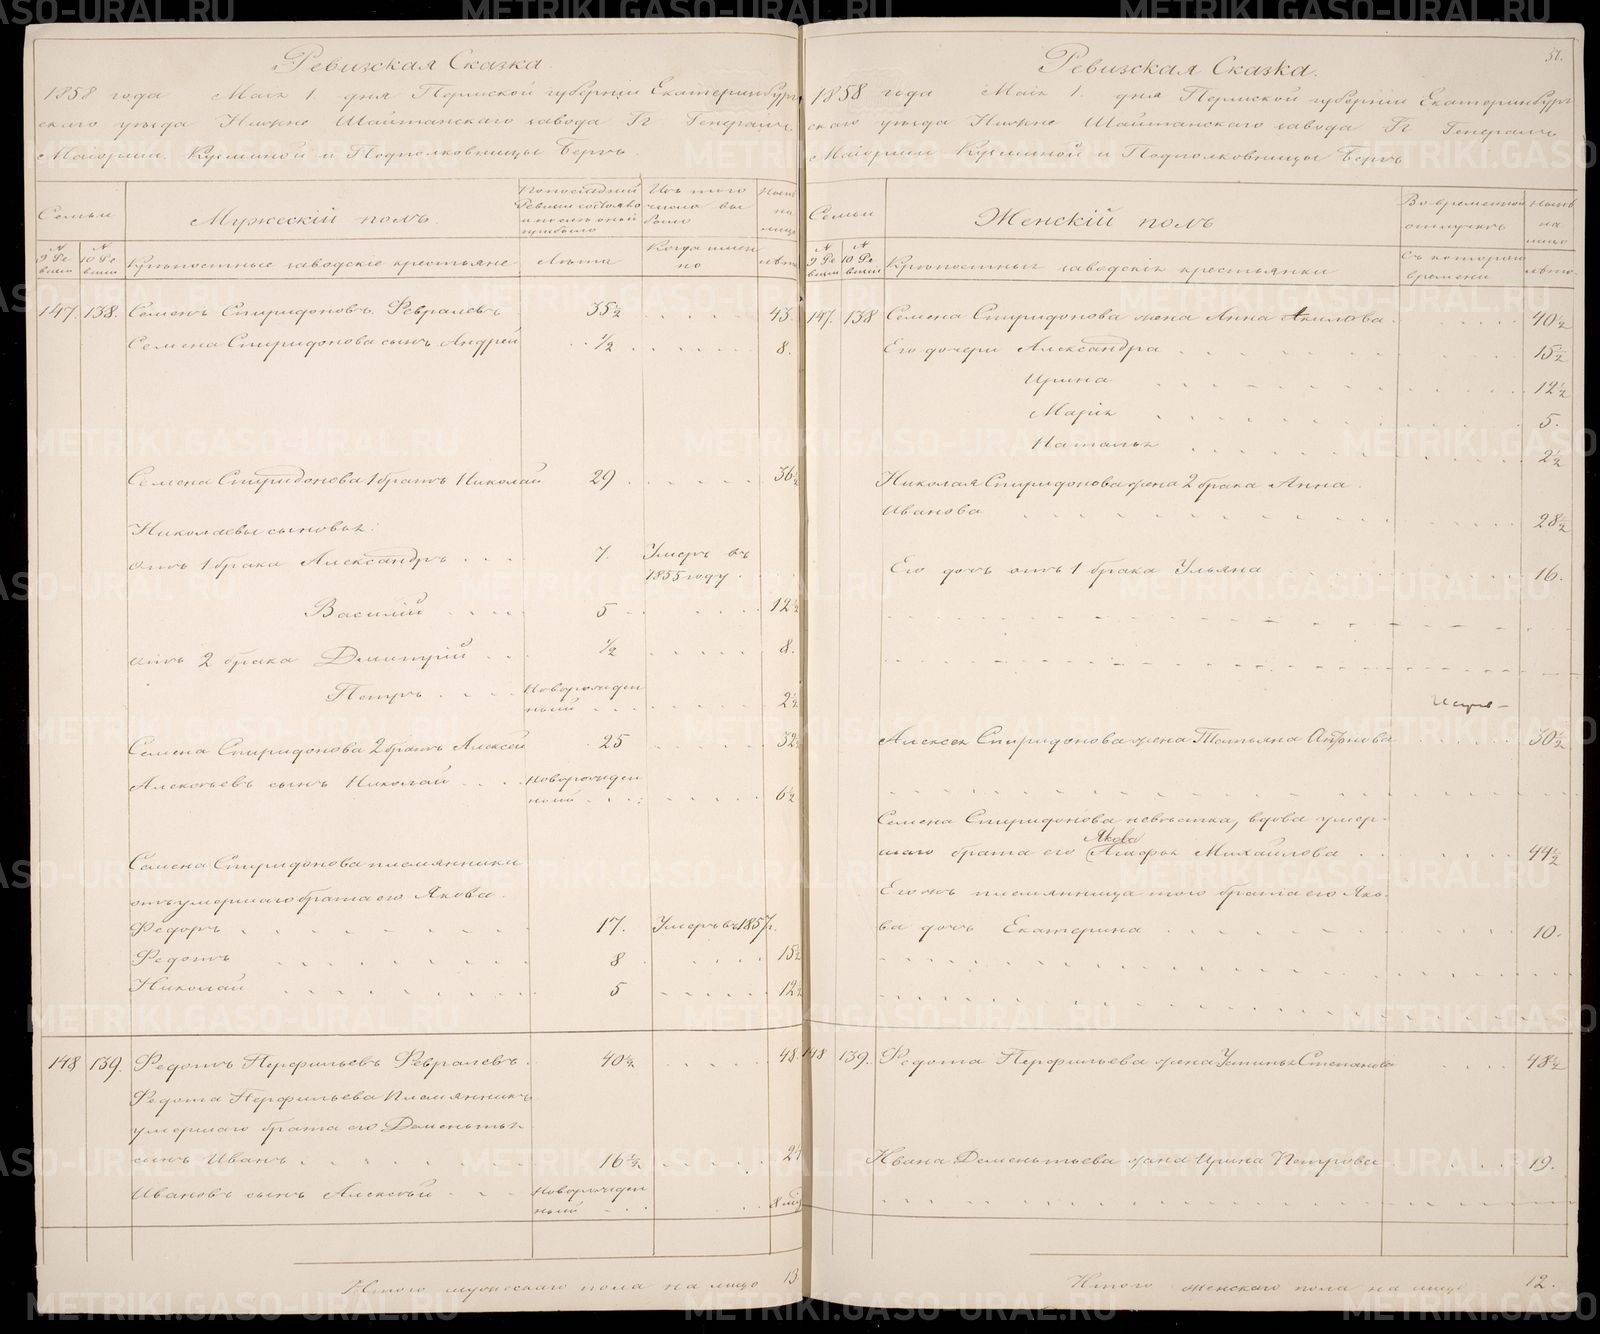 Ревизская Сказка.
1858 года Маiя 1. дня Пермской губернiи Екатеринбург
скаго уѣзда Нижне Шайтанскаго завода Гг Генералъ
Маiорши Кузминой и Подполковницы Бергъ
Семьи
Мужескiй полъ.
По последней Ревизiи состояло и после оной прибыло
Изъ того числа выбыло
Ныне на лицо
№ 9 Ревизiи
№ 10 Ревизiи
Крѣпостные заводскiе крестьяне
Лѣта
Когда именно
лѣта
147. 138. Семенъ Спиридоновъ Февралевъ 35½ 43.
Семена Спиридонова сынъ Андрей ½ 8.
Семена Спиридонова 1 братъ Николай 29 36½
Николаевы сыновья:
отъ 1 брака Александръ 7. Умеръ въ
1855 году.
Василiй 5 12½
отъ 2 брака Дмитрiй ½ 8.
Петръ Новорожден
ный 2½
Семена Спиридонова 2 братъ Алексей 25 32½
Алексѣевъ сынъ Николай Новорожден
ный 6½
Семена Спиридонова племянники
отъ умершаго брата его Якова.
Федоръ 17. Умеръ въ 1857 г.
Федотъ 8 15½
Николай 5 12½
148 139. Федотъ Перфильевъ Февралевъ. 40½ 48
Федота Перфильева Племянникъ
умершаго брата его Дементья
сынъ Иванъ 16½ 24
Ивановъ сынъ Алексѣй Новорожден
ный 8 мѣс
Итого мужескаго пола на лицо 13
51.
Ревизская Сказка.
1858 года Маiя 1. дня Пермской губернiи Екатеринбург
скаго уѣзда Нижне Шайтанскаго завода Гг Генералъ
Маiорши Кузминой и Подполковницы Бергъ
Семьи
Женскiй полъ
Во временной отлучкѣ
Ныне на лицо
№ 9 Ревизiи
№ 10 Ревизiи
Крѣпостныя заводскiя крестьянки
Съ котораго времени
лѣта.
147. 138 Семена Спиридонова жена Анна Акилова 40½
Его дочери Александра 15½
Ирина 12½
Марiя 5.
Наталья 2½
Николая Спиридонова жена 2 брака Анна
Иванова 28½
Его дочь отъ 1 брака Ульяна 16.
Алексея Спиридонова жена Татьяна Антонова 30½
Семена Спиридонова невѣстка, вдова умер-
шаго брата его Якова Агафья Михайлова 44½
Его жъ племянница того брата его Яко-
ва дочь Екатерина 10.
148 139. Федота Перфильева жена Устинья Степанова 48½
Ивана Дементьева жена Ирина Петрова 19.
Итого женскаго пола на лицо 12.
METRIKI.GASO-URAL.RU